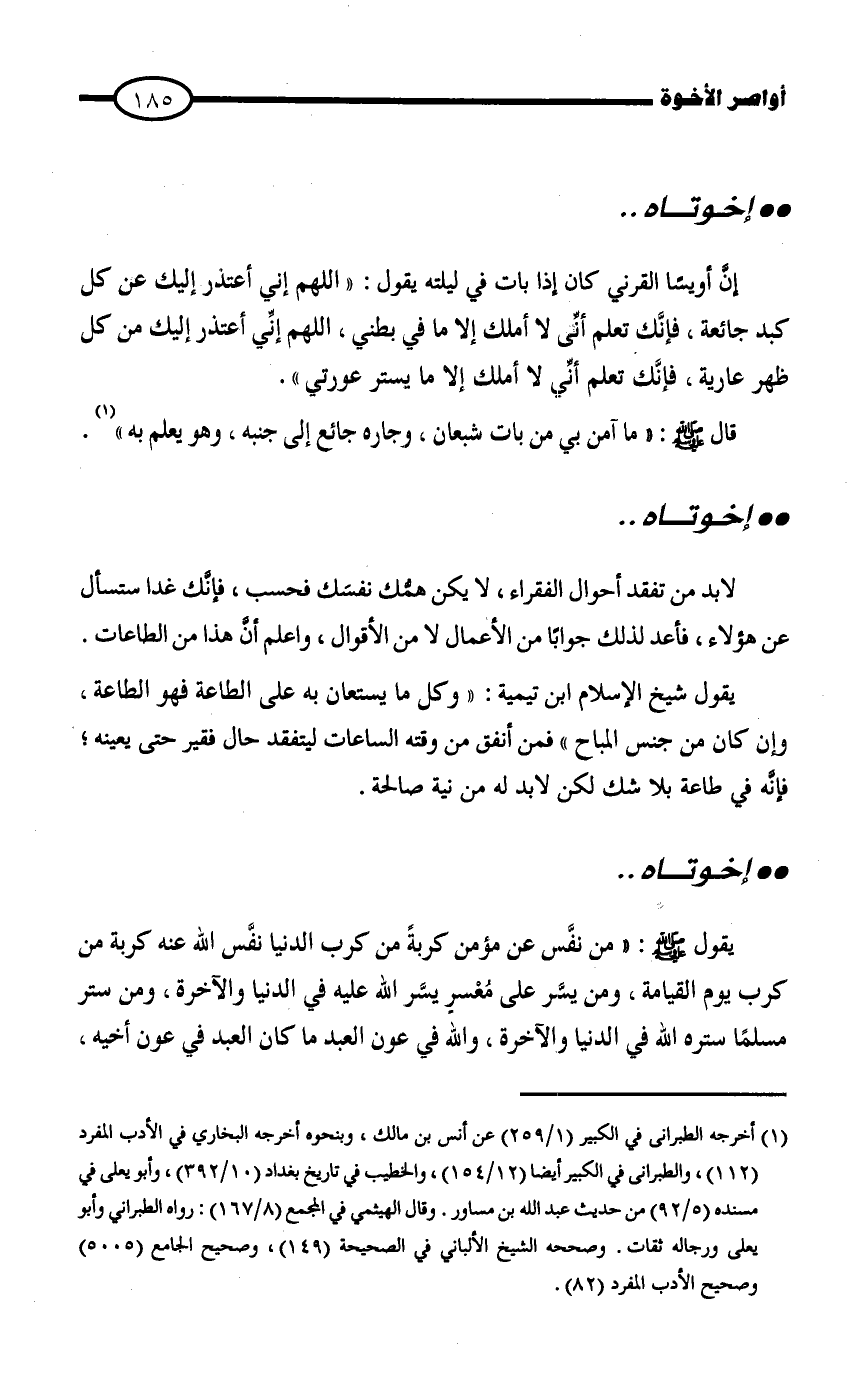 أواصر الأخوة ١٨٥
●● إخوتـــاه ..
إنَّ أويسًا القرني كان إذا بات في ليلته يقول : « اللهم إني أعتذر إليك عن كل
كبد جائعة ، فإنَّك تعلم أنِّى لا أملك إلا ما في بطني ، اللهم إنِّي أعتذر إليك من كل
ظهر عارية ، فإنَّك تعلم أنِّي لا أملك إلا ما يستر عورتي » .
قال ﷺ : « ما آمن بي من بات شبعان ، وجاره جائع إلى جنبه ، وهو يعلم به »(١) .
●● إخوتـــاه ..
لابد من تفقد أحوال الفقراء ، لا يكن همُّك نفسَك فحسب ، فإنَّك غدا ستسأل
عن هؤلاء ، فأعد لذلك جوابًا من الأعمال لا من الأقوال ، واعلم أنَّ هذا من الطاعات .
يقول شيخ الإسلام ابن تيمية : « وكل ما يستعان به على الطاعة فهو الطاعة ،
وإن كان من جنس المباح » فمن أنفق من وقته الساعات ليتفقد حال فقير حتى يعينه ؛
فإنَّه في طاعة بلا شك لكن لابد له من نية صالحة .
●● إخوتـــاه ..
يقول ﷺ : « من نفَّس عن مؤمن كربةً من كرب الدنيا نفَّس الله عنه كربة من
كرب يوم القيامة ، ومن يسَّر على مُعْسرٍ يسَّر الله عليه في الدنيا والآخرة ، ومن ستر
مسلمًا ستره الله في الدنيا والآخرة ، والله في عون العبد ما كان العبد في عون أخيه ،
(١) أخرجه الطبرانى في الكبير (٢٥٩/١) عن أنس بن مالك ، وبنحوه أخرجه البخاري في الأدب المفرد
(١١٢) ، والطبرانى في الكبير أيضا (١٥٤/١٢) ، والخطيب في تاريخ بغداد (٣٩٢/١٠) ، وأبو يعلى في
مسنده (٩٢/٥) من حديث عبد الله بن مساور . وقال الهيثمي في المجمع (١٦٧/٨) : رواه الطبراني وأبو
يعلى ورجاله ثقات . وصححه الشيخ الألباني في الصحيحة (١٤٩) ، وصحيح الجامع (٥٠٠٥)
وصحيح الأدب المفرد (٨٢) .